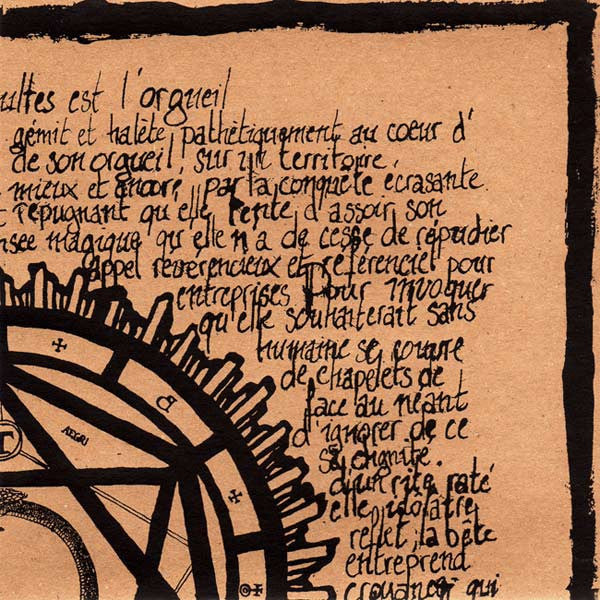 ultes est l'orgueil
gémit et halète pathétiquement au coeur d'
de son orgueil, sur un territoire,
mieux et encore, par la conquête écrasante
répugnant qu'elle tente d'assoir son
nsée magique qu'elle n'a de cesse de répudier
appel révérencieux et référenciel pour
entreprises. Pour invoquer
qu'elle souhaiterait sans
humaine se couvre
de chapelets de
face au néant
d'ignorer de ce
sa dignité.
d'un rite raté
elle idolâtre
reflet, la bête
entreprend
croyances qui
AEGRI
D
T